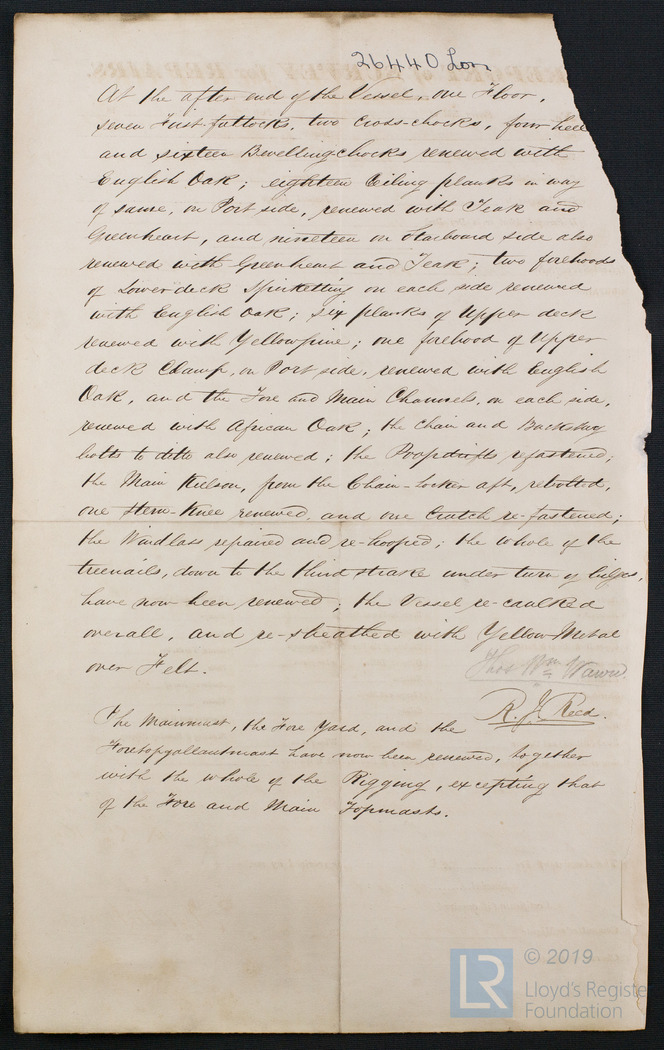 26440 Lon
At the after end of the Vessel, one Floor,
seven First futtocks, two Cross-chocks, four heel
and sixteen Bevelling chocks renewed with
English Oak; eighteen Ceiling planks in way
of same, on Port side, renewed with Teak and
Greenheart, and nineteen on Starboard side also
renewed with Greenheart and Teak; two forehoods
of Lower deck Spirketting on each side renewed
with English Oak; six planks of Upper deck
renewed with Yellow pine; one forehood of Upper
deck Clamp, on Port side, renewed with English
Oak, and the Fore and Main Channels, on each side,
renewed with African Oak; the Chain and Backstay
bolts to ditto also renewed; the Poop drifts refastened;
the Main Keelson, from the Chain-Locker aft, rebolted,
one Stern-Knee renewed, and one Crutch re-fastened;
the Windlass repaired and re-hooped; the whole of the
treenails, down to the third strake under turn of bilges,
have now been renewed; the Vessel re-caulked
overall, and re-sheathed with Yellow Metal
over Felt.
Thos Wm Wawn.
R. J. Reed.
The Mainmast, the Fore Yard, and the
Foretopgallantmast have now been renewed, together
with the whole of the Rigging, excepting that
of the Fore and Main Topmasts.
LR
© 2019
Lloyd's Register
Foundation